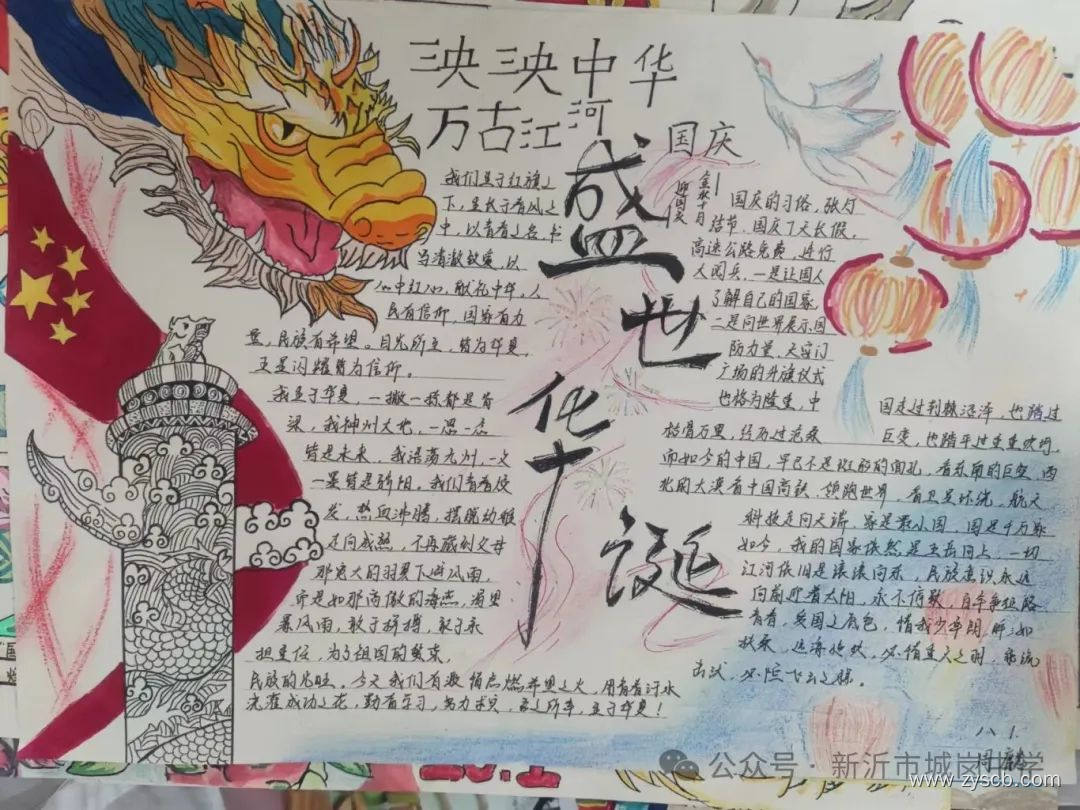 泱泱中华
万古江河
盛世华诞
国庆
喜迎国庆
我们生于红旗之
下,生长于春风之
中,以青春之名,书
当清澈致爱,以
心中红心,献礼中华,人
民有信仰,国家有力
量,民族有希望。目光所至,皆为华夏,
五星闪耀皆为信仰。
我生于华夏,一撇一捺都是脊
梁,我神州大地,一思一念
皆是未来,我浩荡九州,一文
一墨皆是骄阳,我们青春绽
发,热血沸腾,摆脱幼稚
走向成熟,不再藏到父母
那宽大的羽翼下避风雨,
而是如那高傲的海燕,渴望
暴风雨,敢于拼搏,敢于承
担重任,为了祖国的繁荣,
民族的兴旺,今天我们有激情点燃希望之火,用青春汗水
浇灌成功之花,勤奋学习,努力求识,吾之所幸,生于华夏!
国庆的习俗,张灯
结节,国庆7天长假,
高速公路免费,进行
大阅兵,一是让国人
了解自己的国家,
二是向世界展示国
防力量,天安门
广场的升旗仪式
也格为隆重,中
国走过荆棘沼泽,也踏过
格骨万里,经历过沧桑
巨变,也踏平过重重坎坷,
而如今的中国,早已不是斑驳的面孔,看东南的巨变,西
北的大漠有中国高铁,领跑世界,有卫星环绕,航天
科技走向天端,家是最小国,国是千万家
如今,我的国家依然是五岳向上,一切
江河依旧是滚滚向东,民族意识永远
向前迎着太阳,永不停歇,
青春,英国之底色,
扶桑,
八、1.
公众号·新沂市城岗中学
www.zyscb.com